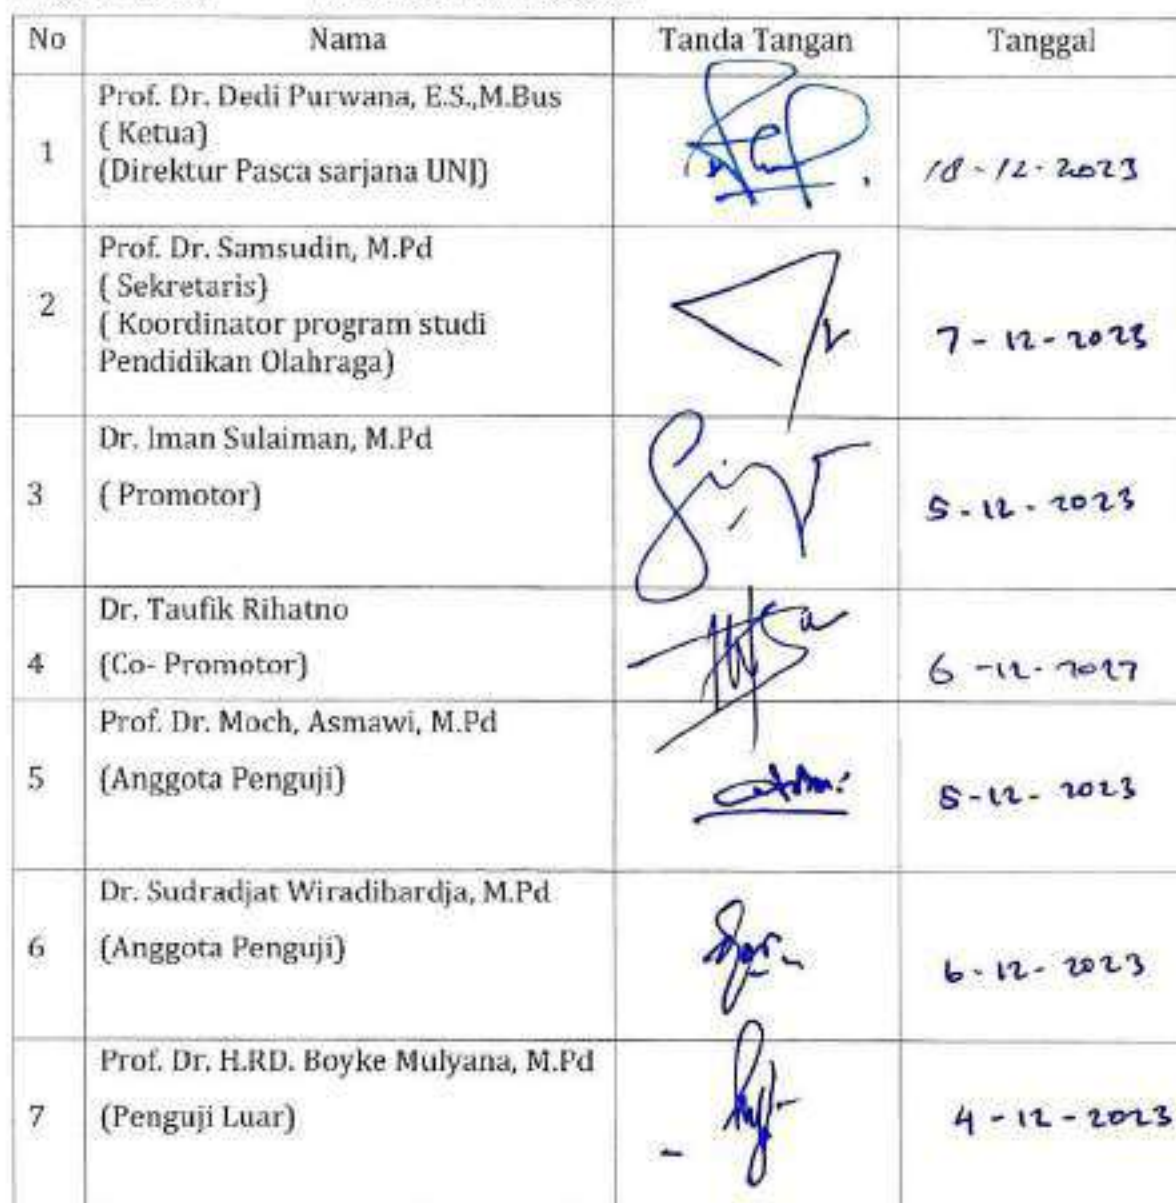 No Nama Tanda Tangan Tanggal
Prof. Dr. Dedi Purwana, E.S.,M.Bus
( Ketua)
1 (Direktur Pasca sarjana UNJ) 18-12-2023
Prof. Dr. Samsudin, M.Pd
( Sekretaris)
2 ( Koordinator program studi 7-12-2023
Pendidikan Olahraga)
Dr. Iman Sulaiman, M.Pd
3 ( Promotor) 5-12-2023
Dr. Taufik Rihatno
4 (Co- Promotor) 6-12-
Prof. Dr. Moch, Asmawi, M.Pd
5 (Anggota Penguji) 5-12-2023
Dr. Sudradjat Wiradihardja, M.Pd
6 (Anggota Penguji) 6-12-2023
Prof. Dr. H.RD. Boyke Mulyana, M.Pd
7 (Penguji Luar) 4-12-2023